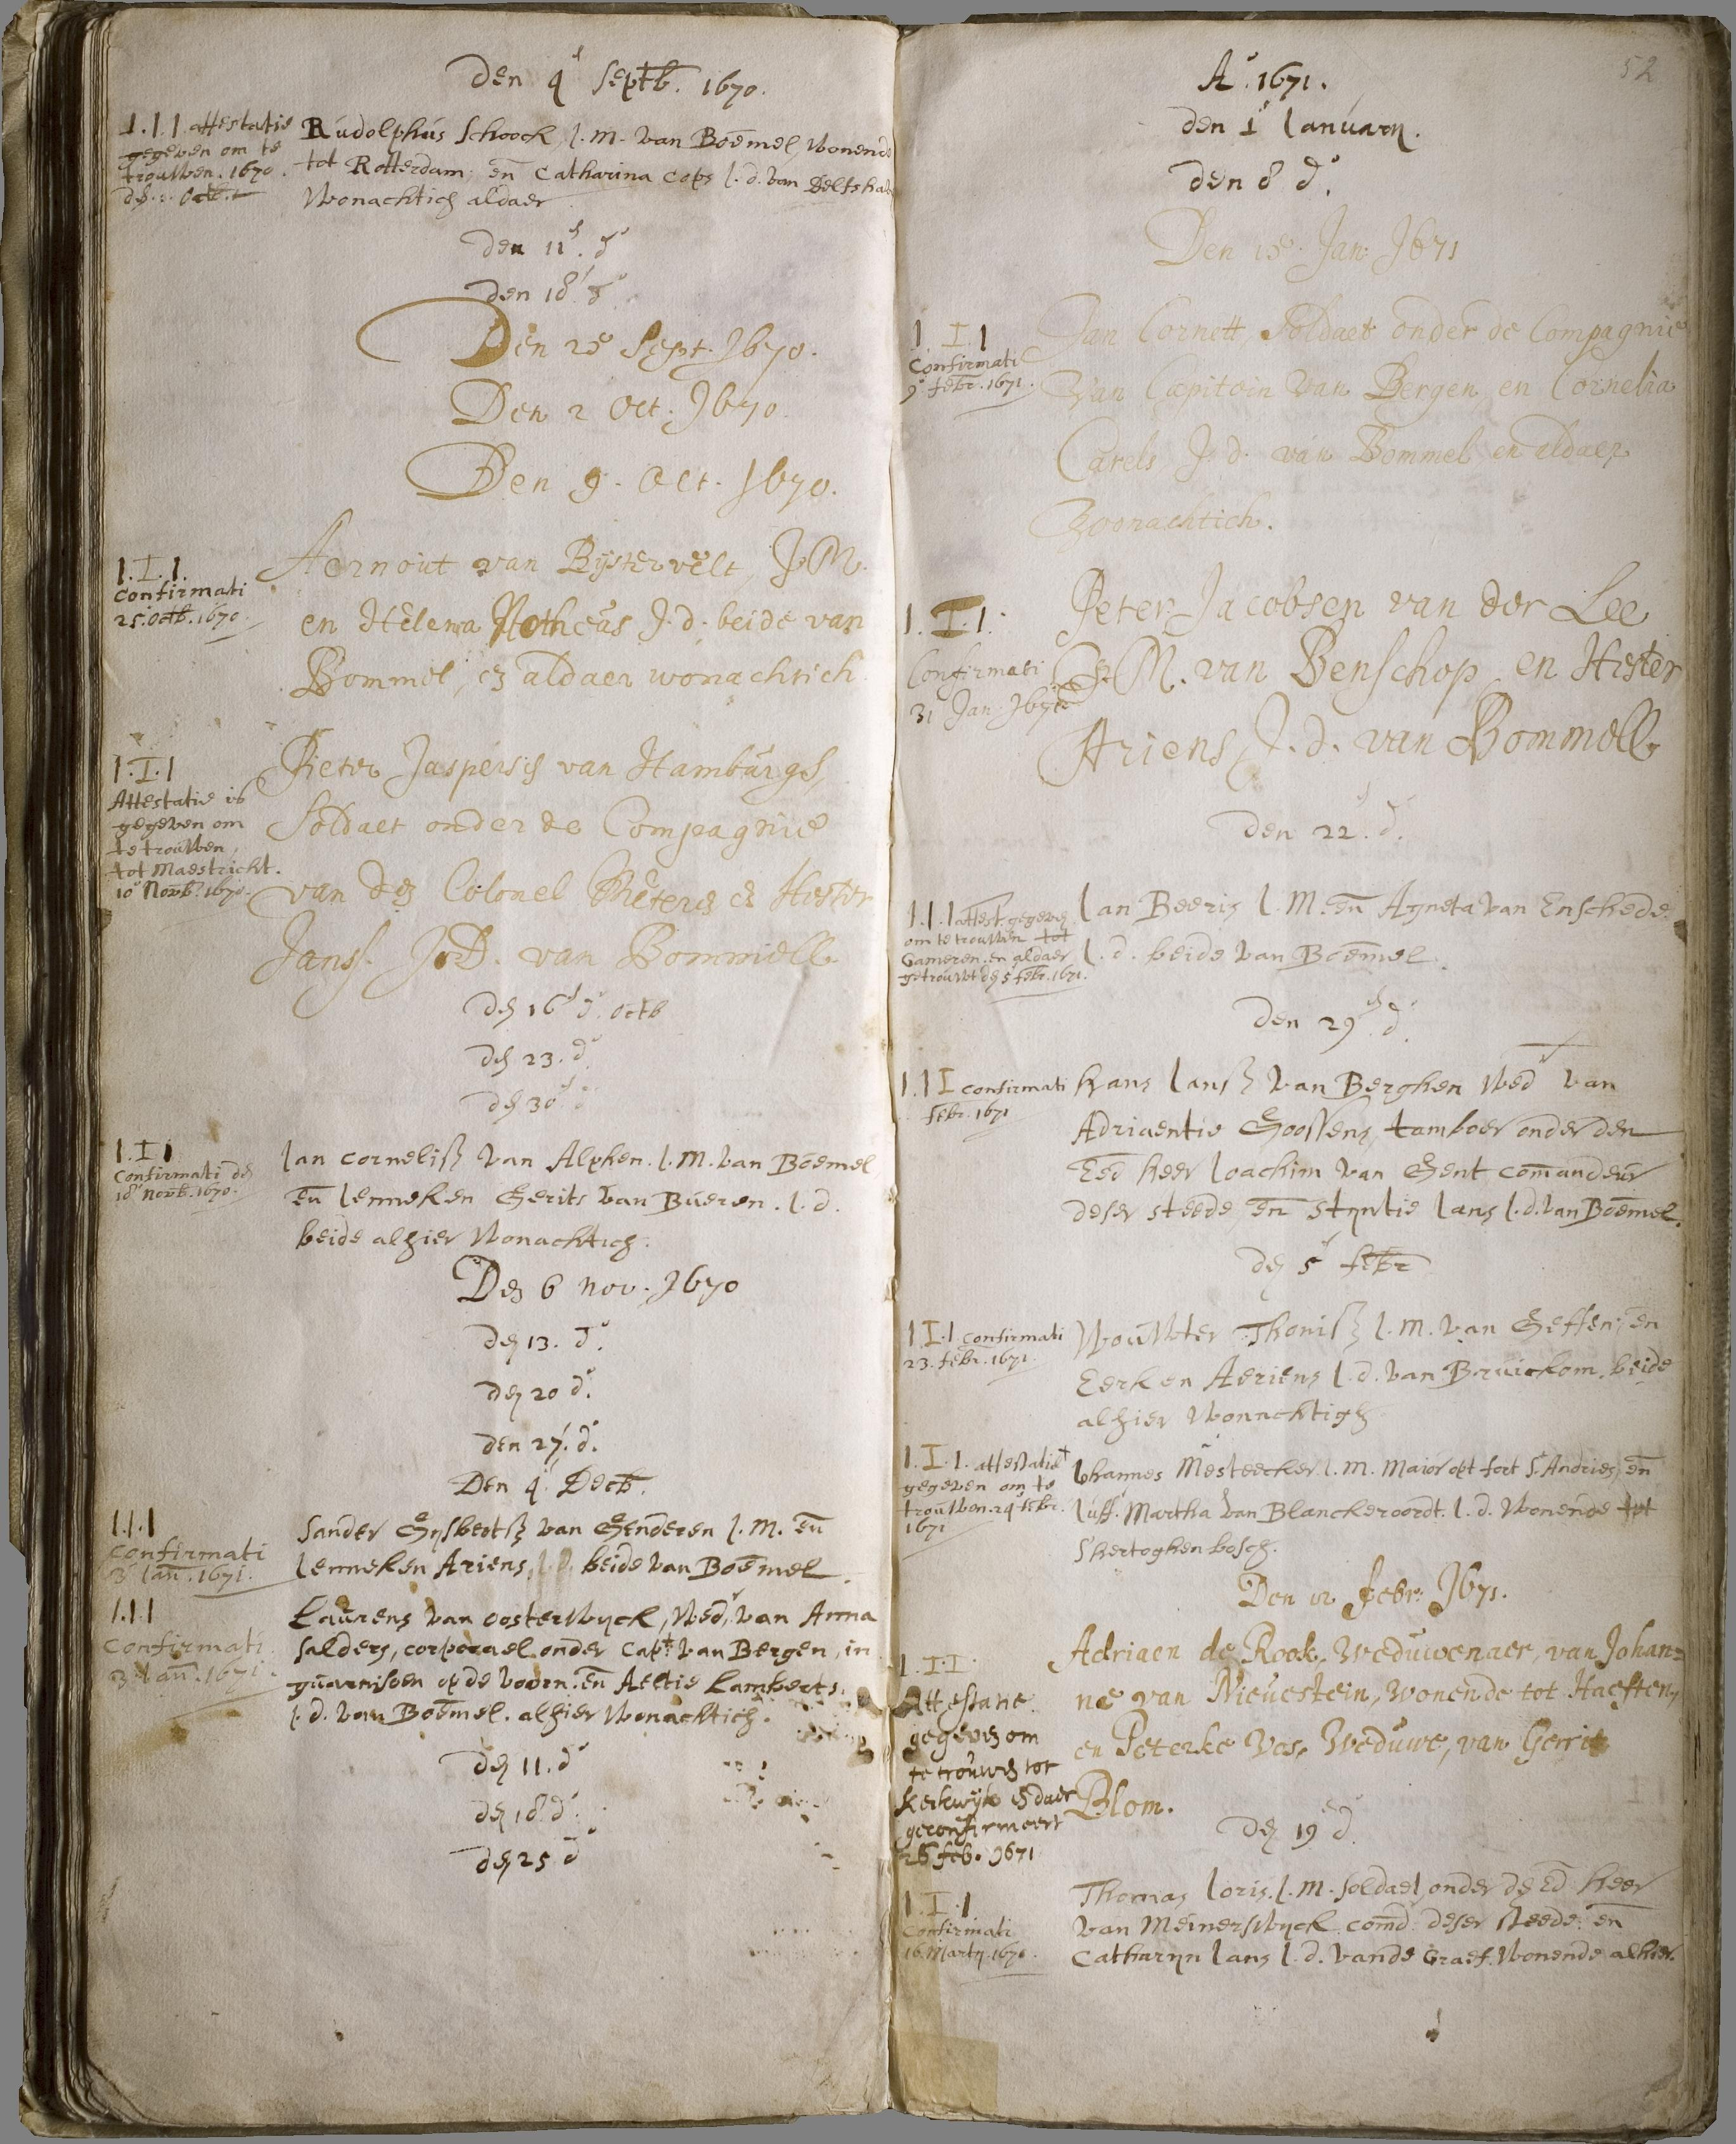 den 4 Septb. 1670.
1.1.1 attestatie
gegeven om te
trouwen. 1670.
Rudolphus Schoock, J.M. van Boemel, wonende
tot Rotterdam, en Catharina Cops J.d. van Delfshav
Wonachtich aldaer
den 11. do
den 18. do
Den 25 Sept. 1670.
Den 2 Oct. 1670.
Den 9. Oct. 1670.
1.I.1.
Confirmati
25. octb. 1670
Aernout van Bijstervelt, J.M.
en Helena Notheas J.d. beide van
Bommel, en aldaer wonachtich
1.I.1
Attestatie is
gegeven om
te trouwen
tot Maestricht.
10 Novb. 1670.
Pieter Jaspersen van Hamburgh,
Soldaet onder de Compagnie
van den Colonel en Hester
Janss. J.D. van Bommell
den 16 do. octb
den 23. do
den 30 do
1.I.1
Confirmati den
18 novb. 1670.
Jan Cornelisz van Alphen. J.M. van Boemel
en Jenneken Gerits van Bueren. J.d.
beide alhier wonachtich.
Den 6 Nov. 1670
den 13. do.
den 20 do.
den 27. do.
Den 4 Decb.
1.1.1
Confirmati
3 Jan. 1671.
Sander Gysbertsz van Genderen J.M. en
Jenneken Ariens, J.d. beide van Boemel.
1.1.1
Confirmati
3 Jan. 1671.
Laurens van Oosterwyck, Wedr van Anna
Salders, corporael onder Capt. van Bergen, in
guarnisoen op de voorn. en Aeltie Lamberts.
J.d. van Boemel. alhier Wonachtich.
den 11. do
den 18. do
den 25 do
52
Ao. 1671.
den 1 January.
den 8 do.
Den 15 Jan: 1671
1.I.1
Confirmati
9 febr. 1671.
Jan Cornett, Soldaet onder de Compagnie
Van Capitein van Bergen, en Cornelia
Carels, J.d. van Bommel, en aldaer
Woonachtich.
1.I.1.
Confirmati
31 Jan. 1671
Peter Jacobsen van der Lee
J.M. van Benschop, en Hester
Ariens, J.d. van Bommell
den 22. do.
1.1.1 attest. gegeven
om te trouwen tot
Gameren. en aldaer
getrouwt den 5 febr. 1671.
Jan Beeris J.M. en Agneta van Enschede.
J.d. beide van Boemel.
den 29 do.
1.1 I confirmati
febr. 1671
Hans Jansz van Berghen Wedr van
Adriaentie Goossens, tamboer onder den
Ed heer Joachim van Gent comandeur
deser steede, en Styntie Jans J.d. van Boemel.
den 5 febr
1.I.1 confirmati
23. febr. 1671.
Wouter Thonisz J.M. van Geffen, en
Eerken Aeriens J.d. van Bruickom. beide
alhier Wonachtigh
1.I.1. attestatie
gegeven om te
trouwen. 24 febr.
1671
Johannes Mesteecker J.M. Maior opt fort St. Andries, en
Juff. Martha van Blanckeroordt. J.d. Wonende tot
S'hertoghenbosch.
Den 12 febr: 1671.
1.I.I.
Attestatie
gegeven om
te trouwen tot
Kerkwijk en daer
geconfirmeert
26 feb. 1671
Adriaen de Rook, Weduwenaer, van Johan=
na van Nieuestein, wonende tot Haeften,
en Peterke Vos, Weduwe, van Gerrit
Blom.
den 19 do.
1.I.1
Confirmati
16 Marty. 1670.
Thomas Joris. J.M. soldaet onder den Ed heer
van Meinerswyck comd. deser steede. en
Catharyn Jans J.d. vande Graef. Wonende alhier.